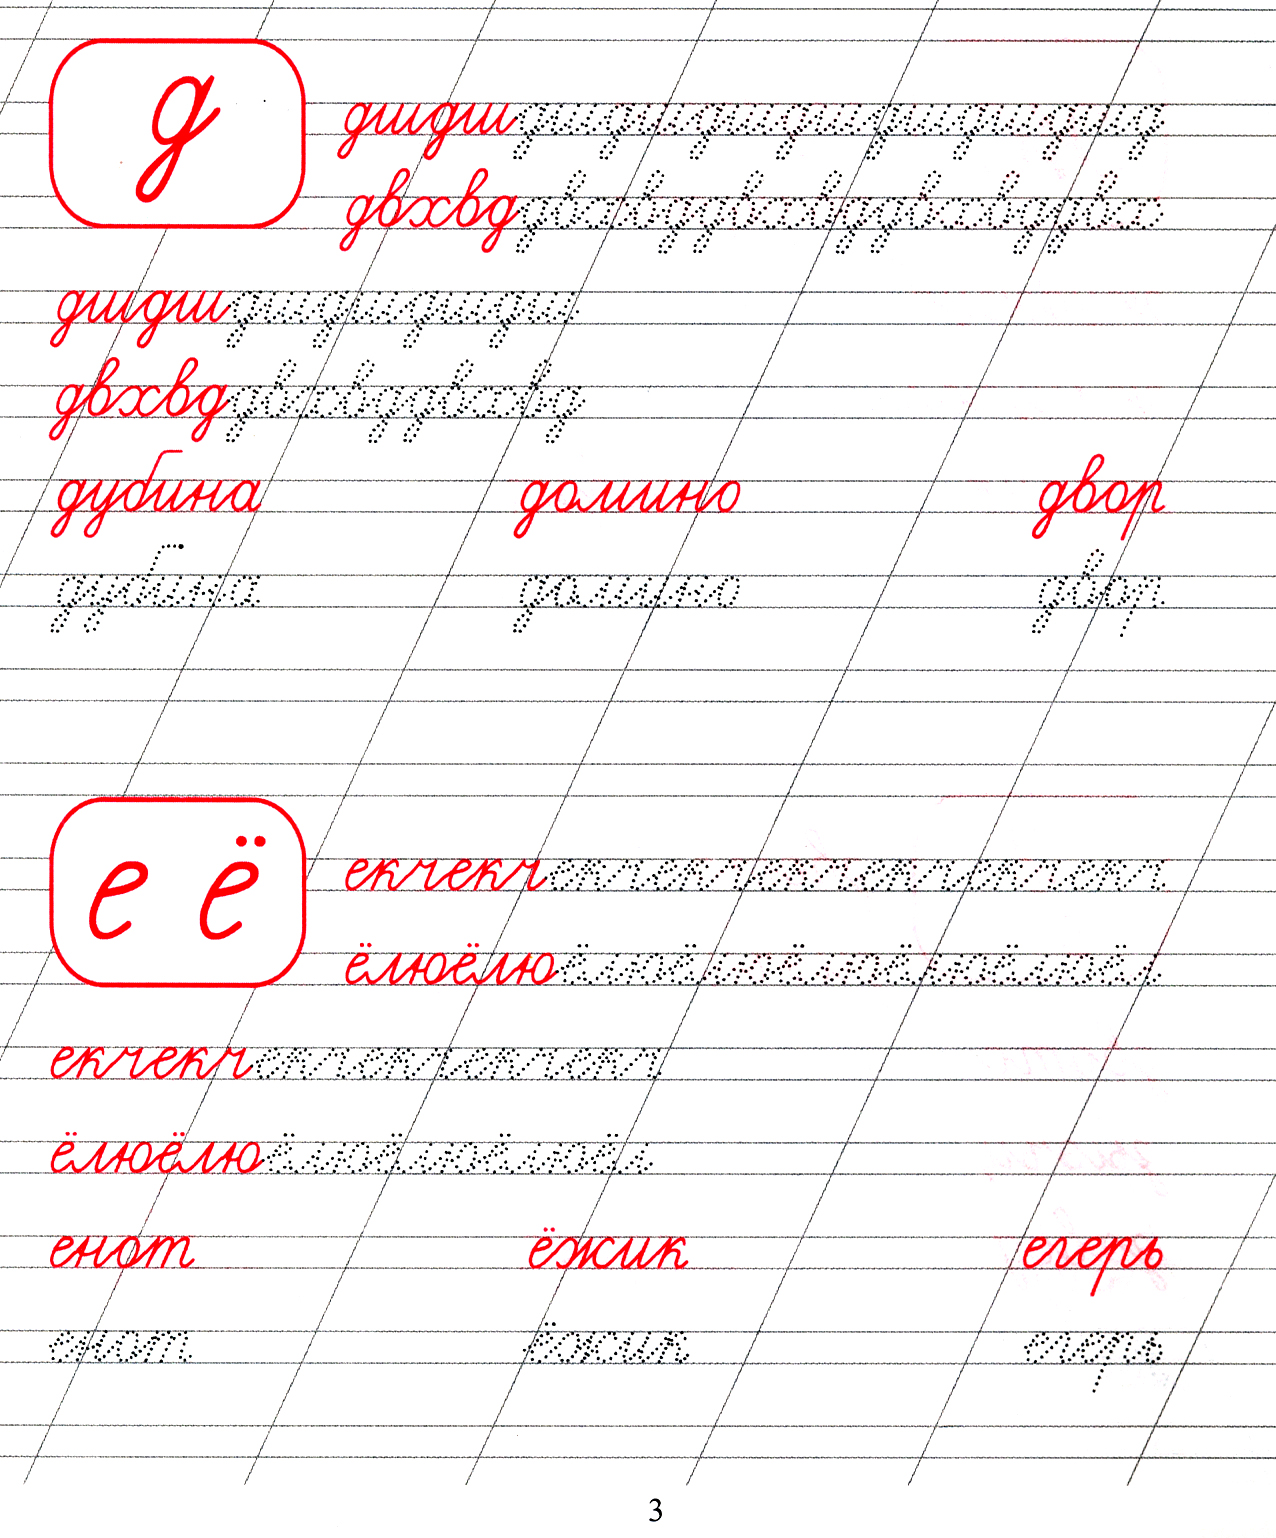 д
дшдшдшдшдшдшдшдшдшд
двхвддвхвддвхвддвхвддвх
дшдшдшдшдшдш
двхвддвхвддвхвд
дубина домино двор
дубина домино двор
е ё
екчекчекчекчекчекчекчекч
ёлюёлюёлюёлюёлюёлюёлюёл
екчекчекчекчекчекч
ёлюёлюёлюёлюёлюёл
енот ёжик егерь
енот ёжик егерь
3